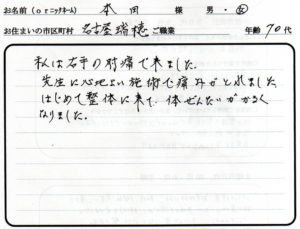 お名前(orニックネーム) 本田 様 男・女
お住まいの市区町村 名古屋瑞穂 ご職業 年齢 70代
私は右手の肘痛で来ました。
先生に心地よい施術で痛みがとれました
はじめて整体に来て、体ぜんたいがかるく
なりました。